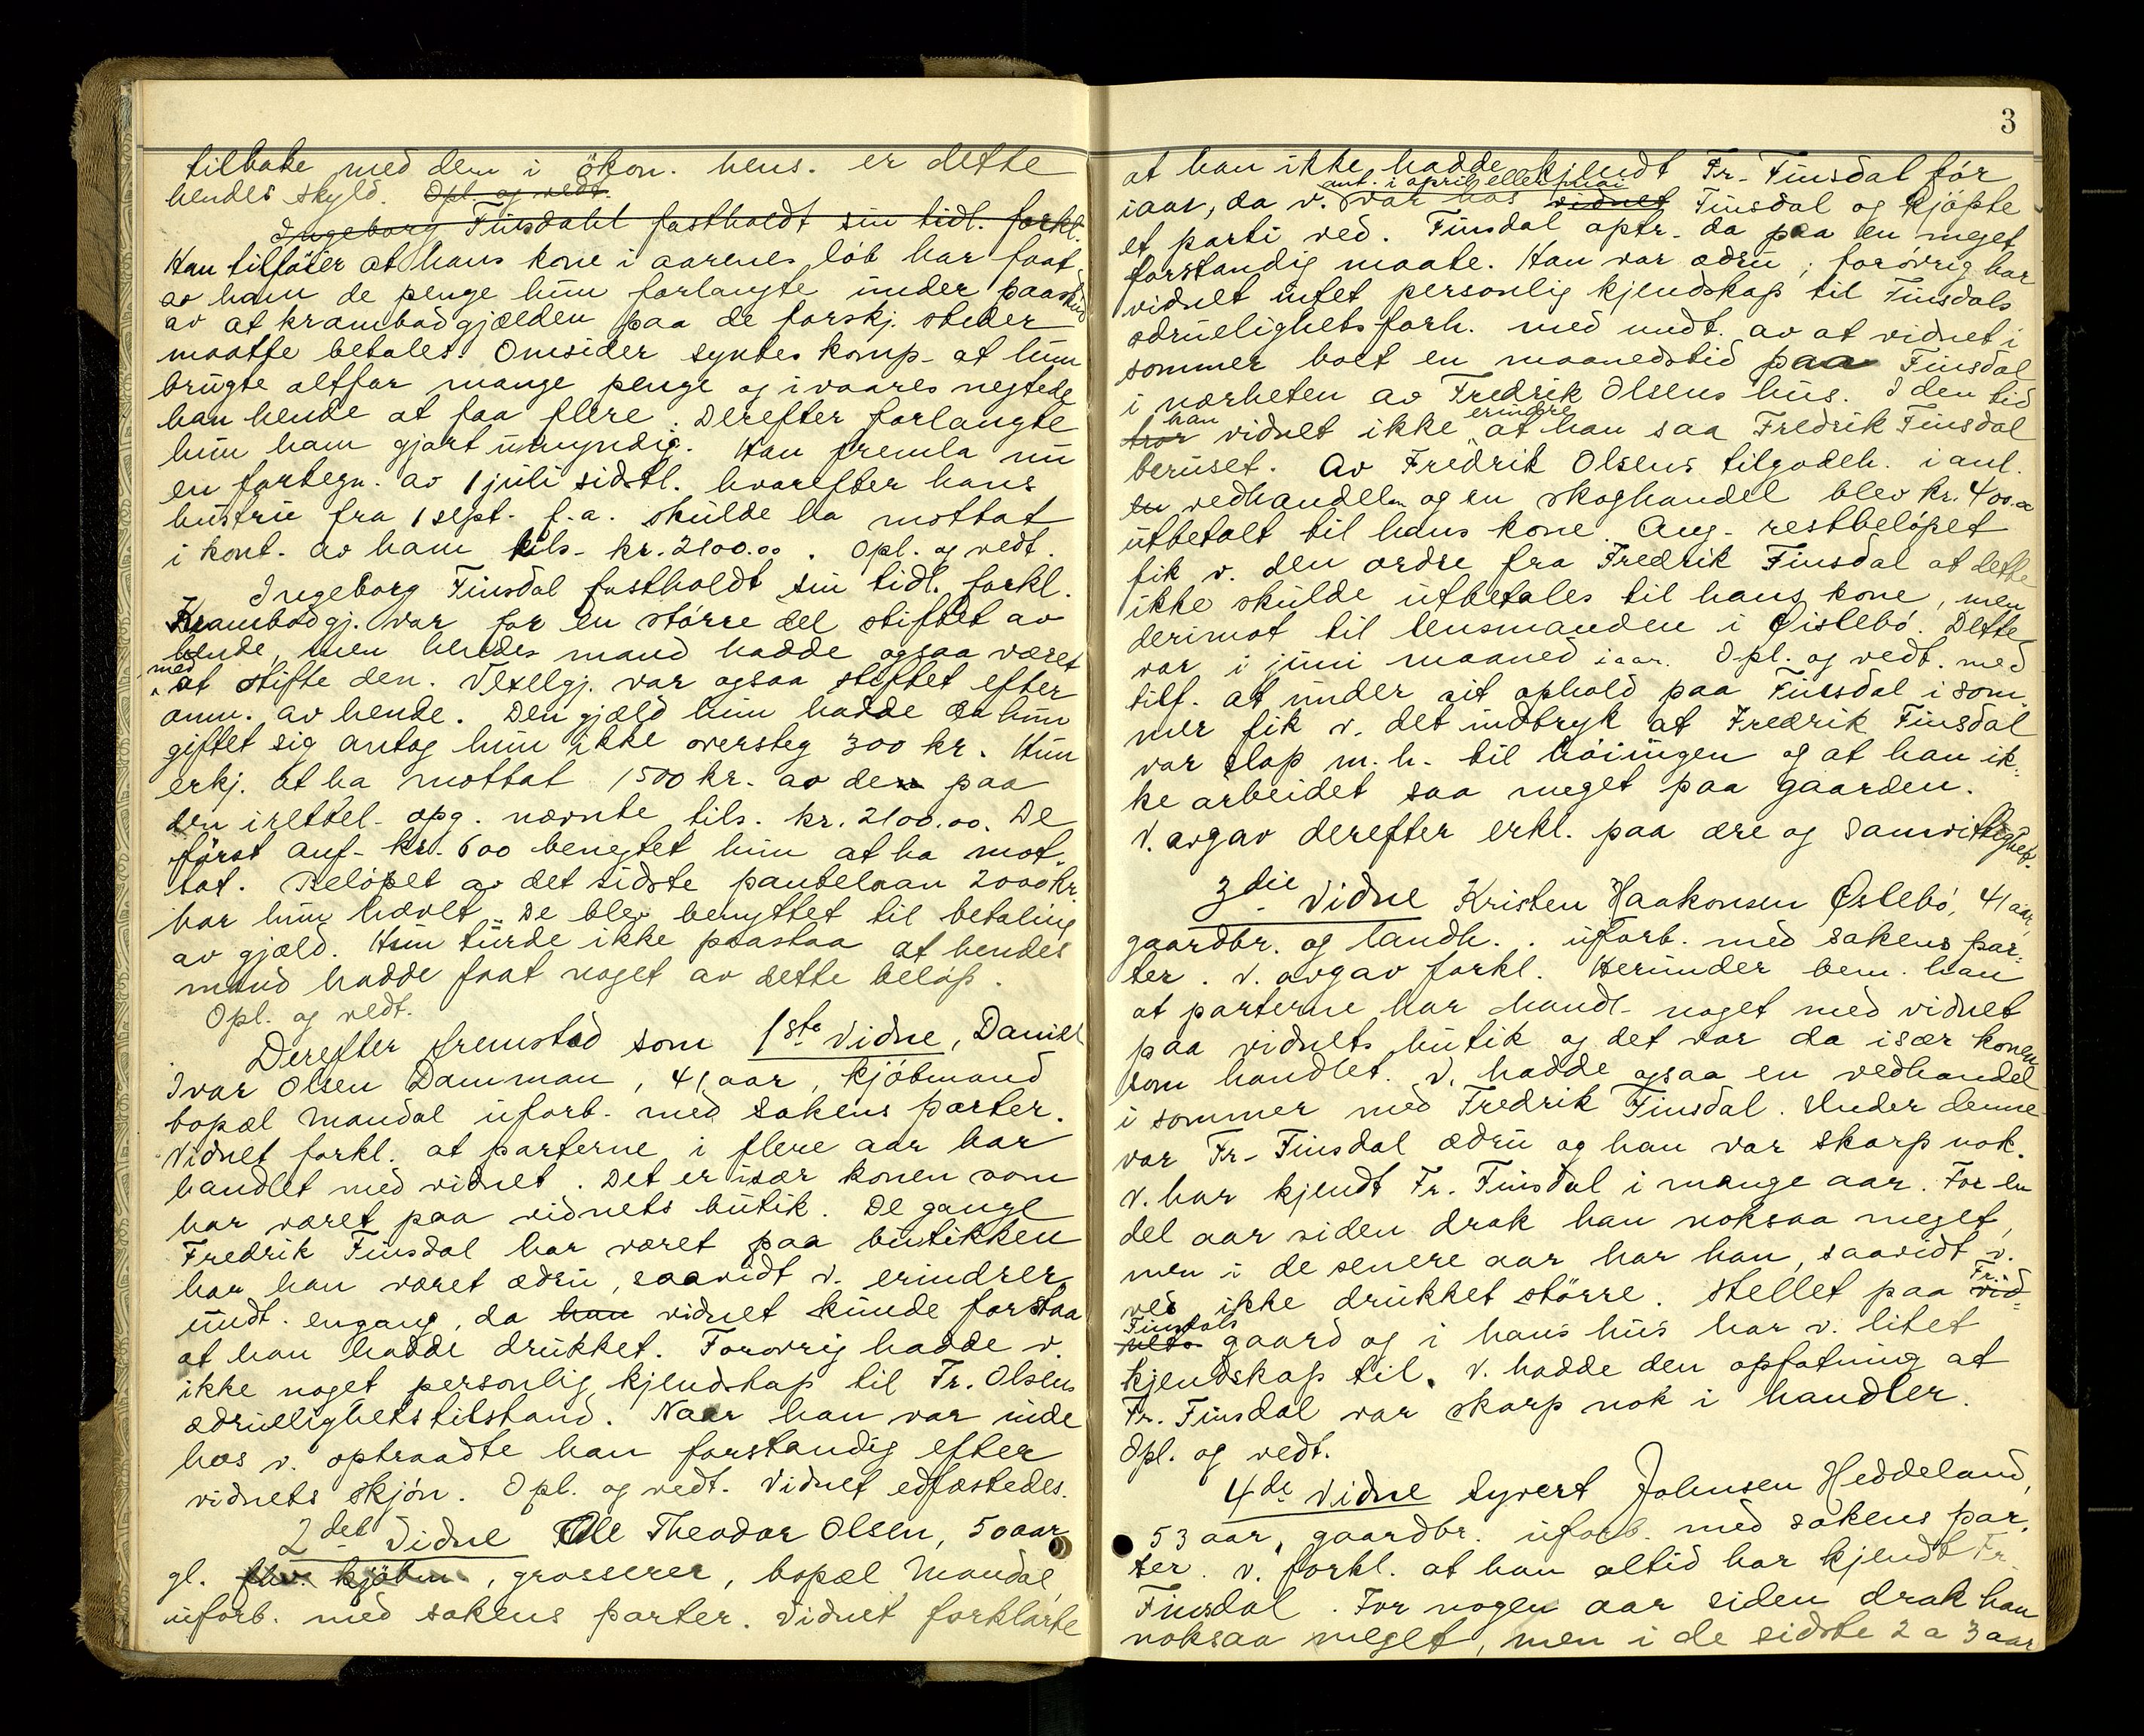 tilbake med dem i økon. hens. er dette
hendes skyld. Opl. og vedt.
Ingeborg Finsdahl fastholdt sin tidl. forkl.
Han tilføier at hans kone i aarenes løb har faat
av ham de penge hun forlangte under paaskud
av at krambodgjælden paa de forskj. steder
maatte betales. Omsider syntes komp. at hun
brugte altfor mange penge og ivaares negtede
han hende at faa flere. Derefter forlangte
hun ham gjort umyndig. Han fremla nu
en fortegn. av 1 juli sidstl. hvorefter hans
hustru fra 1 sept. f.a. skulde ha mottat
i kont. av ham tils. kr. 2100.00. Opl. og vedt.
Ingeborg Finsdal fastholdt sin tidl. forkl.
Krambodgj. var for en større del stiftet av
hende, men hendes mand hadde ogsaa været
med
at stifte den. Vexelgj. var ogsaa stiftet efter
anm. av hende. Den gjæld hun hadde da hun
giftet sig antog hun ikke oversteg 300 kr. Hun
erkj. at ha mottat 1500 kr. av den paa
den irettel. opg. nævnte tils. kr. 2100.00. De
først anf. kr. 600 benegtet hun at ha mot-
tat. Beløpet av det sidste pantelaan 2000 kr.
har hun hævet. De blev benyttet til betaling
av gjæld. Hun turde ikke paastaa at hendes
mand hadde faat noget av dette beløp.
Opl. og vedt.
Derefter fremstod som 1ste Vidne, Daniel
Ivar Olsen Damman, 41 aar, kjøbmand
bopæl Mandal uforb. med sakens parter.
Vidnet forkl. at parterne i flere aar har
handlet med vidnet. Det er især konen som
har været paa vidnets butik. De gange
Fredrik Finsdal har været paa butikken
har han været ædru, saavidt v. erindrer
undt. engang, da han vidnet kunde forstaa
at han hadde drukket. Forøvrig hadde v.
ikke noget personlig kjendskap til Fr. Olsens
ædruelighetstilstand. Naar han var inde
hos v. optraadte han forstandig efter
vidnets skjøn. Opl. og vedt. Vidnet edfæstedes.
2det Vidne Ole Theodor Olsen, 50 aar
gl. fhv. kjøbm., grosserer, bopæl Mandal
uforb. med sakens parter. Vidnet forklarte
3
at han ikke hadde kjendt Fr. Finsdal før
ant. i april eller mai
iaar, da v. var hos vidnet Finsdal og kjøpte
et parti ved. Finsdal optr. da paa en meget
forstandig maate. Han var ædru; forøvrig har
vidnet intet personlig kjendskap til Finsdals
ædruelighetsforh. med undt. av at vidnet i
sommer boet en maanedstid paa Finsdal
i nærheten av Fredrik Olsens hus. I den tid
han erindre
tror vidnet ikke at han saa Fredrik Finsdal
beruset. Av Fredrik Olsens tilgodeh. i anl.
en vedhandelen og en skoghandel blev kr. 400.00
utbetalt til hans kone. Ang. restbeløpet
fik v. den ordre fra Fredrik Finsdal at dette
ikke skulde utbetales til hans kone, men
derimot til lensmanden i Øislebø. Dette
var i juni maaned iaar. Opl. og vedt. med
tilf. at under sit ophold paa Finsdal i som-
mer fik v. det indtryk at Fredrik Finsdal
var slap m.h. til høiingen og at han ik-
ke arbeidet saa meget paa gaarden.
V. avgav derefter erkl. paa ære og samvittighet.
3die Vidne Kristen Haakonsen Øslebø, 41 aar,
gaardbr. og landh. . uforb. med sakens par-
ter. V. avgav forkl. Herunder bem. han
at parterne har handl. noget med vidnet
paa vidnets butik og det var da især konen
som handlet. V. hadde ogsaa en vedhandel
i sommer med Fredrik Finsdal. Under denne
var Fr. Finsdal ædru og han var skarp nok.
V. har kjendt Fr. Finsdal i mange aar. For en
del aar siden drak han noksaa meget,
men i de senere aar har han, saavidt v.
Fr.
ved ikke drukket større. Stellet paa vid-
Finsdals
nets gaard og i hans hus har v. litet
kjendskap til. V. hadde den opfatning at
Fr. Finsdal var skarp nok i handler.
Opl. og vedt.
4de Vidne Syvert Johnsen Heddeland,
53 aar, gaardbr. uforb. med sakens par-
ter. V. forkl. at han altid har kjendt Fr.
Finsdal. For nogen aar siden drak han
noksaa meget, men i de sidste 2 a 3 aar